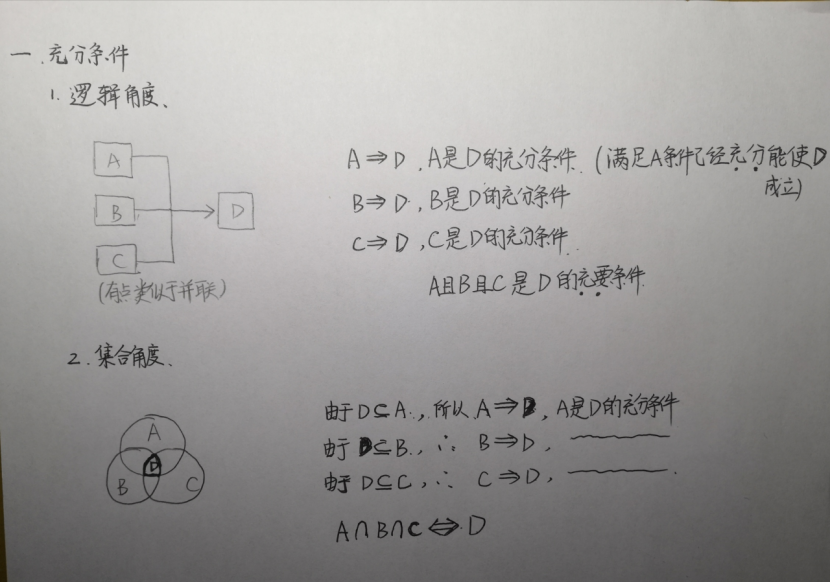 一、充分条件
1. 逻辑角度、
A
B
C
D
(有点类似于并联)
A⇒D，A是D的充分条件.（满足A条件已经充分能使D
成立)
B⇒D，B是D的充分条件
C⇒D，C是D的充分条件.
A且B且C是D的充要条件.
2. 集合角度、
A
B
C
D
由于D⊆A.，所以A⇒D，A是D的充分条件
由于D⊆B.，∴ B⇒D，
由于D⊆C，∴ C⇒D，
A∩B∩C⇔D